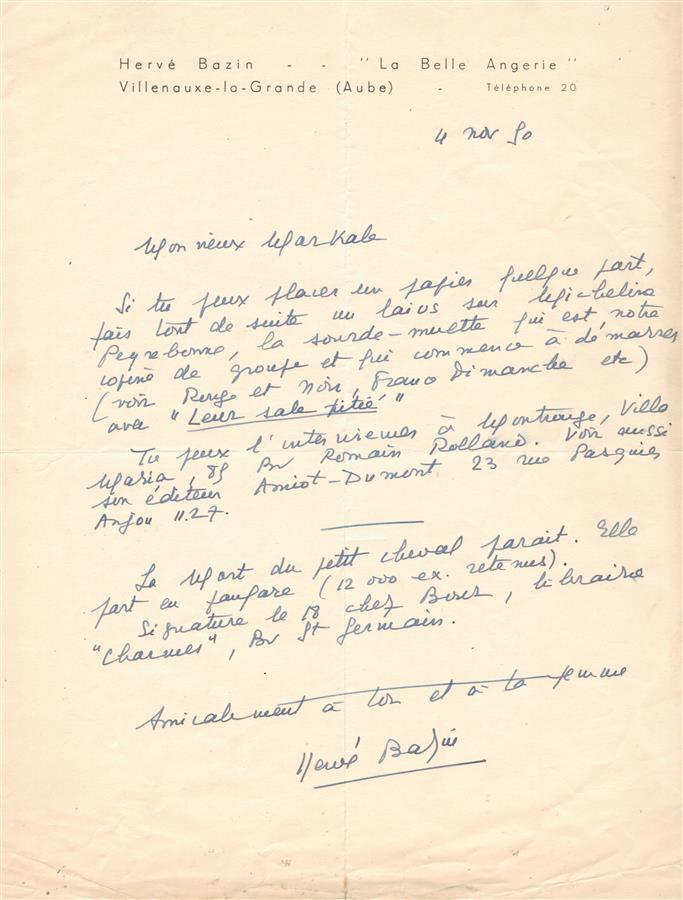 Hervé Bazin - - "La Belle Angerie"
Villenauxe-la-Grande (Aube) - Téléphone 20
4 nov 50
Mon vieux Markale
Si tu peux placer un papier quelque part,
fais tout de suite un laïus sur Micheline
Peyrebonne, la sourde-muette qui est notre
copine de groupe et qui commence à démarrer
(voir Rouge et Noir, France Dimanche etc)
avec "Leur sale pitié"
Tu peux l'interviewer à Montrouge, Villa
Maria, 85 Bv Romain Rolland. Voir aussi
son éditeur Amiot-Dumont 23 rue Pasquier
Anjou 11.27.
La Mort du petit cheval parait. Elle
part en fanfare (12 000 ex. retenus).
Signature le 18 chez , librairie
"Charmes", Bv St Germain.
Amicalement à toi et à ta femme
Hervé Bazin